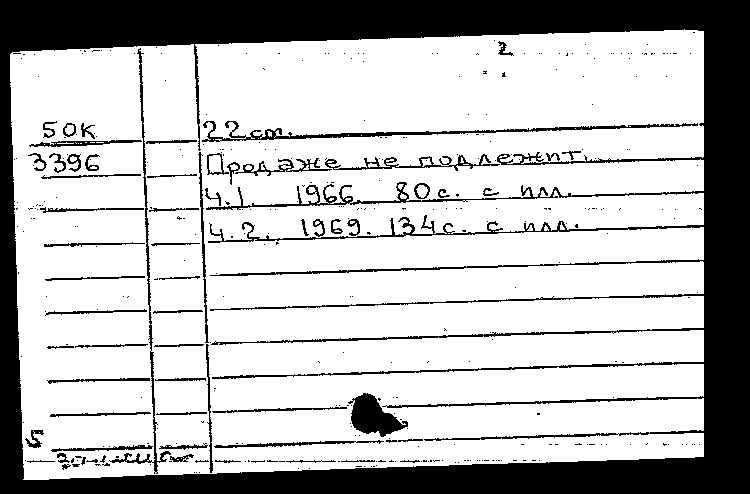 2
50К 22 см.
3396 Продаже не подлежит.
ч.1. 1966. 80с. с илл.
ч.2. 1969. 134с. с илл.
5